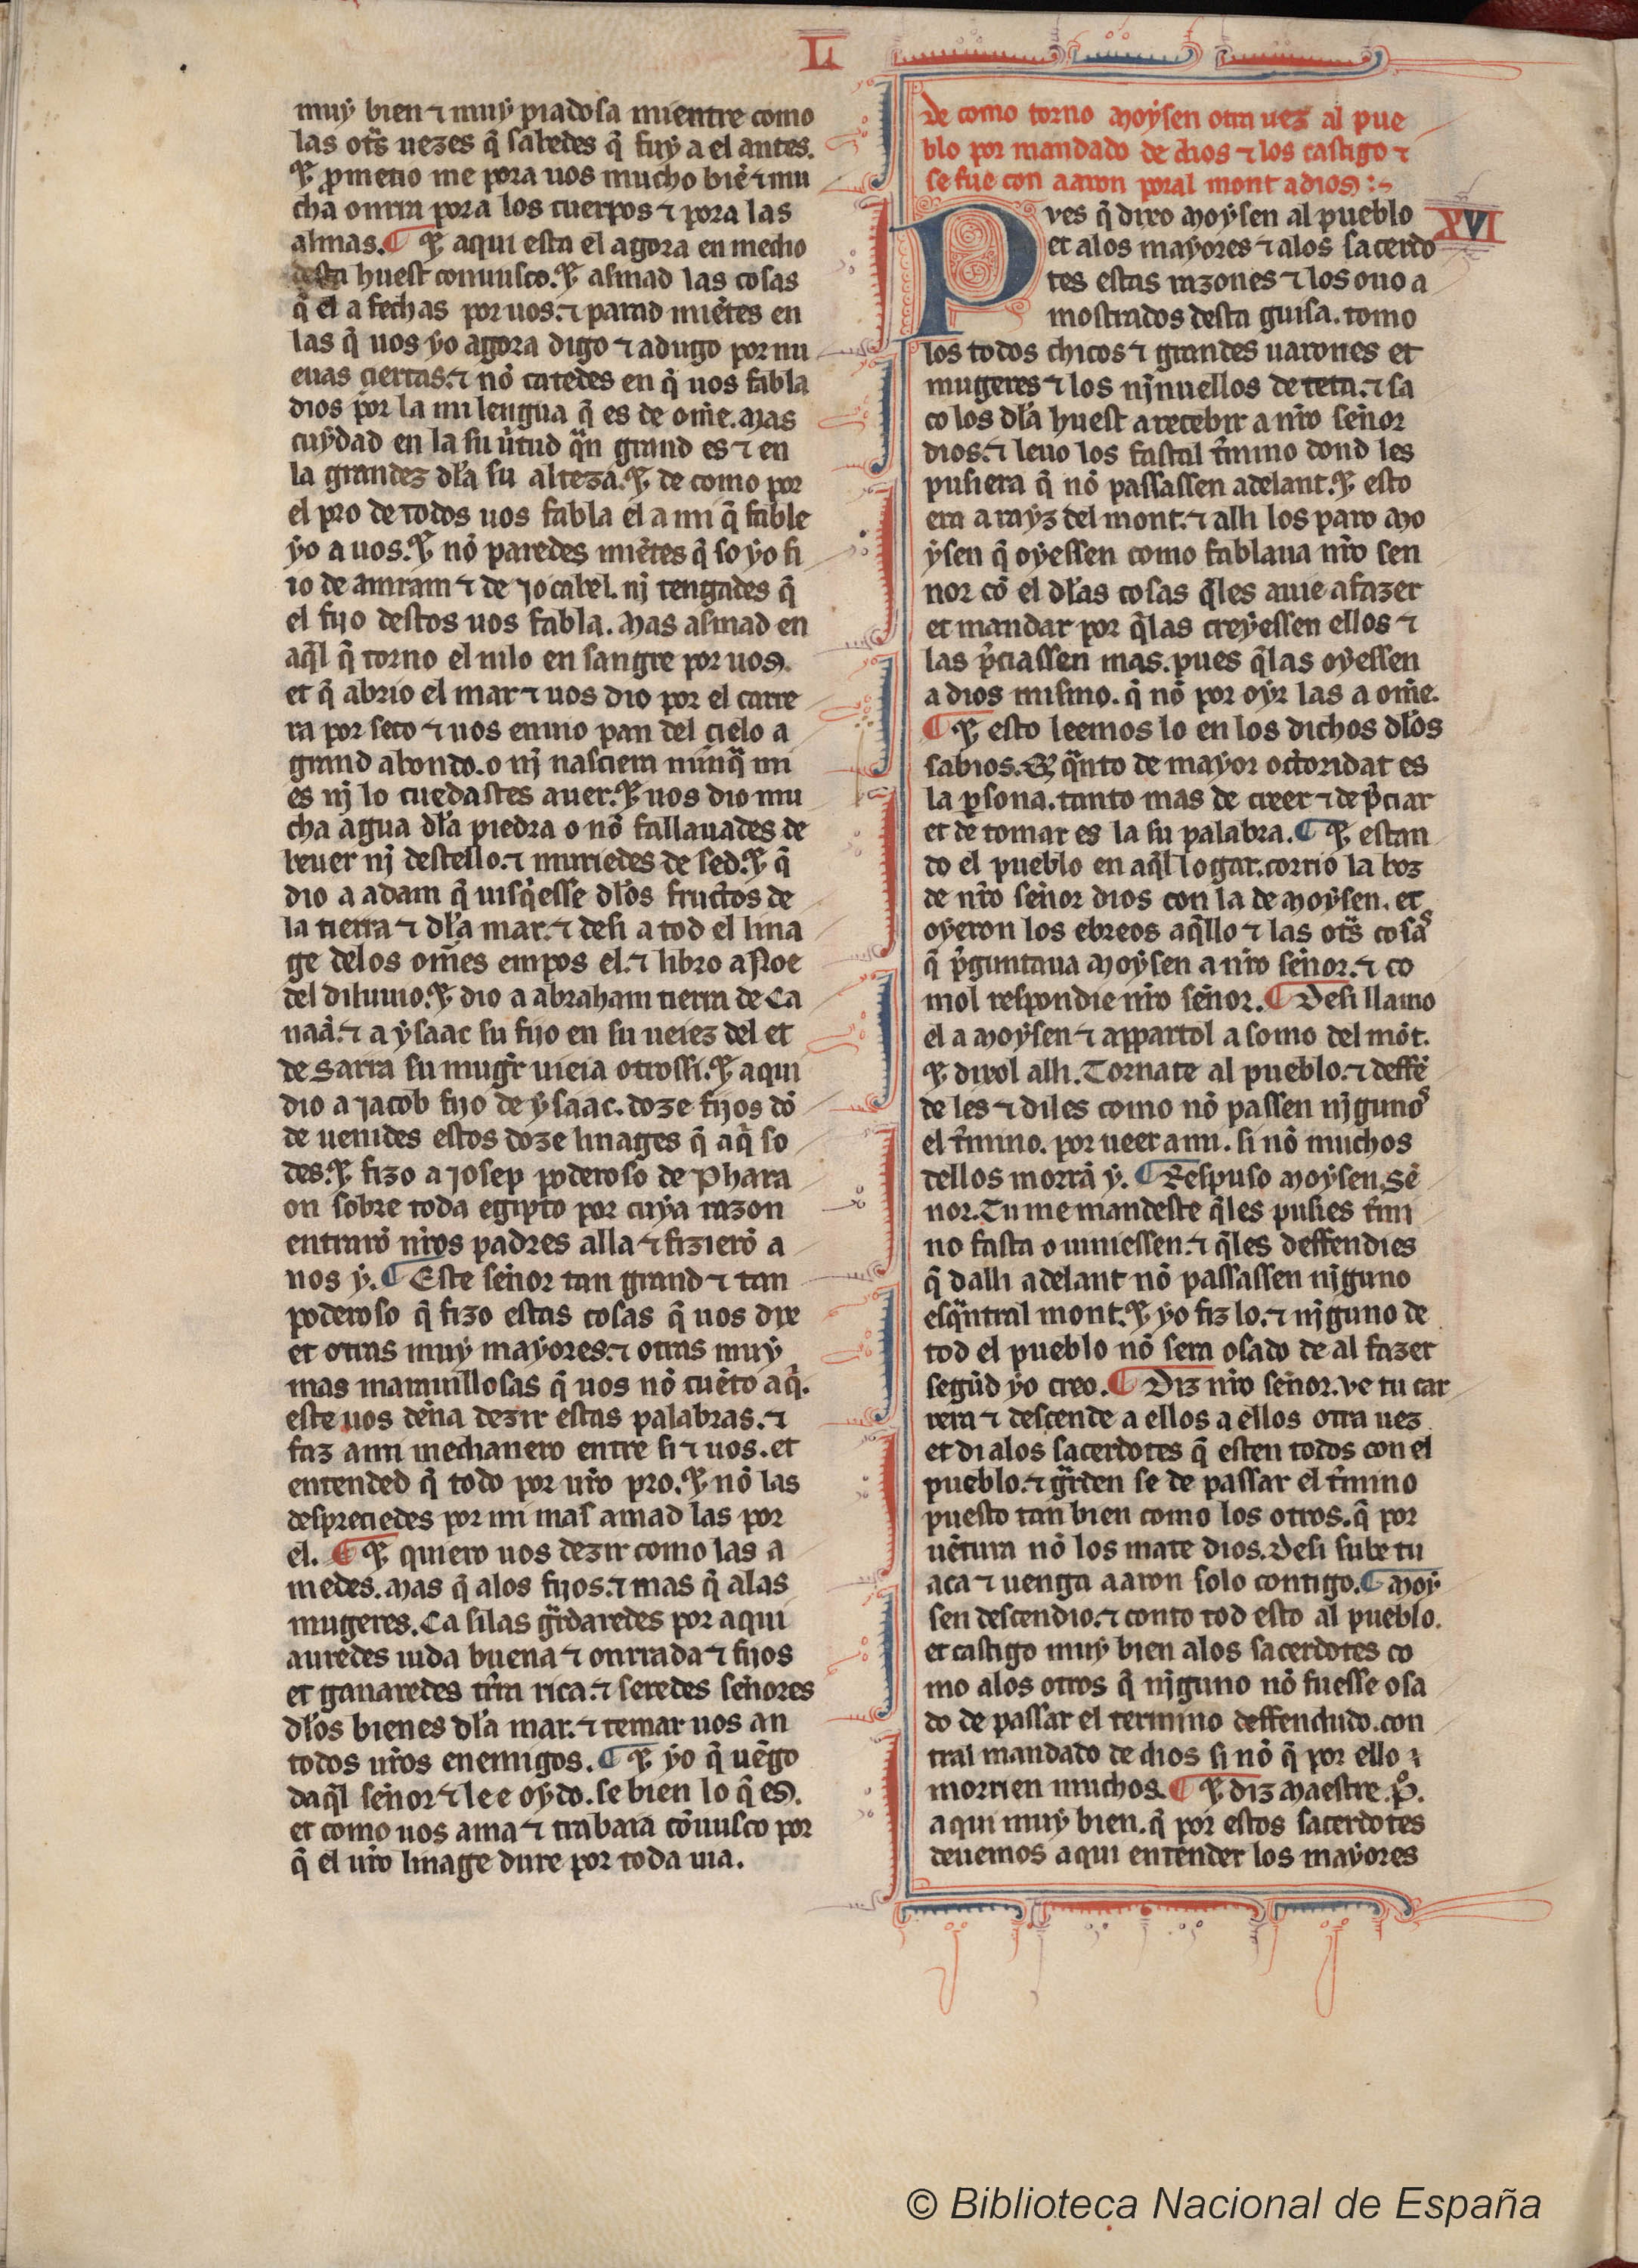 LI
muẏ bien ⁊ muẏ piadosa mientre como
las otr̃s uezes q̃ sabedes q̃ fuẏ a el antes.
⁊ ꝓmetio me pora uos mucho biẽ ⁊ mu
cha onrra pora los cuerpos ⁊ pora las
almas. ¶ ⁊ aqui esta el agora en medio
desta huest conuusco. ⁊ asmad las cosas
q̃ el a fechas por uos. ⁊ parad miẽtes en
las q̃ uos ẏo agora digo ⁊ adugo por nu
euas çiertas. ⁊ nõ catedes en q̃ uos fabla
dios por la mi lengua q̃ es de om̃e. Mas
cuẏdad en la su ũtud qũn grand es ⁊ en
la grandez dl̃a su alteza. ⁊ de como por
el pro de todos uos fabla el a mi q̃ fable
ẏo a uos. ⁊ nõ paredes miẽtes q̃ so ẏo fi
io de amram ⁊ de Jocabel. nj tengades q̃
el fijo destos uos fabla. Mas asmad en
aq̃l q̃ torno el nilo en sangre por uos.
et q̃ abrio el mar ⁊ uos dio por el carre
ra por seco ⁊ uos enuio pan del çielo a
grand abondo. o nj nasciera nũnq̃ mi
es nj lo cuedastes auer. ⁊ uos dio mu
cha agua dl̃a piedra o nõ fallauades de
beuer nj destello. ⁊ muriedes de sed. ⁊ q̃
dio a adam q̃ uisq̃esse dl̃os fructos de
la tierra ⁊ dl̃a mar. ⁊ desi a tod el lina
ge delos om̃es empos el. ⁊ libro a Noe
del diluuio. ⁊ dio a abraham tierra de Ca
naã. ⁊ a ẏsaac su fijo en su ueiez del et
de Sarra su mug̃r uieia otrossi. ⁊ aqui
dio a Jacob fijo de ẏsaac. doze fijos dõ
de uenides estos doze linages q̃ aq̃ so
des. ⁊ fizo a Josep poderoso de Phara
on sobre toda egipto por cuẏa razon
entrarõ nr̃os padres alla ⁊ fizierõ a
nos ẏ. ¶ Este sẽnor tan grand ⁊ tan
poderoso q̃ fizo estas cosas q̃ uos dixe
et otras muẏ maẏores. ⁊ otras muẏ
mas marauillosas q̃ uos nõ cuẽto aq̃.
este uos deña dezir estas palabras. ⁊
faz ami medianero entre si ⁊ uos. et
entended q̃ todo por ur̃o pro. ⁊ nõ las
despreciedes por mi mas amad las por
el. ¶ ⁊ quiero uos dezir como las a
medes. Mas q̃ alos fijos. ⁊ mas q̃ alas
mugeres. Ca silas gũrdaredes por aqui
auredes uida buena ⁊ onrrada ⁊ fijos
et ganaredes tr̃ra rica. ⁊ seredes sẽnores
dl̃os bienes dl̃a mar. ⁊ temar uos an
todos ur̃os enemigos. ¶ ⁊ ẏo q̃ uẽgo
daq̃l sẽnor ⁊ le e oẏdo. se bien lo q̃ es.
et como uos ama ⁊ trabaia cõuusco por
q̃ el ur̃o linage dure por toda uia.
de como torno Moẏsen otra uez al pue
blo por mandado de dios ⁊ los castigo ⁊
se fue con aaron poral mont a dios :~
XVI
Pves q̃ dixo Moẏsen al pueblo
et alos maẏores ⁊ alos sacerdo
tes estas razones ⁊ los ouo a
mostrados desta guisa. tomo
los todos chicos ⁊ grandes uarones et
mugeres ⁊ los njnnuellos de teta. ⁊ sa
co los dl̃a huest a recebir a nr̃o sẽnor
dios. ⁊ leuo los fastal t̃mino dond les
pusiera q̃ nõ passassen adelant. ⁊ esto
era a raẏz del mont. ⁊ alli los paro Mo
ẏsen q̃ oẏessen como fablaua nr̃o sen
nor cõ el dl̃as cosas q̃les auie a fazer
et mandar por q̃las creẏessen ellos ⁊
las p̃ciassen mas. pues q̃las oẏessen
a dios mismo. q̃ nõ por oẏr las a om̃e.
¶ ⁊ esto leemos lo en los dichos dl̃os
sabios. Et qũnto de mayor octoridat es
la ꝑsona. tanto mas de creer ⁊ de p̃ciar
et de tomar es la su palabra. ¶ ⁊ estan
do el pueblo en aq̃l logar. corrio la boz
de nr̃o sẽnor dios con la de Moẏsen. et
oẏeron los ebreos aq̃llo ⁊ las otr̃s cosas
q̃ p̃guntaua Moẏsen a nr̃o sẽnor. ⁊ co
mol respondie nr̃o sẽnor. ¶ Desi llamo
el a Moẏsen ⁊ appartol a somo del mõt.
⁊ dixol alli. Tornate al pueblo. ⁊ deffẽ
de les ⁊ diles como nõ passen njgunos
el t̃mino. por ueer ami. si nõ muchos
dellos morrã ẏ. ¶ Respuso Moẏsen. Sẽ
nor. Tu me mandeste q̃les pusies t̃mi
no fasta o uiniessen. ⁊ q̃les deffendies
q̃ dalli adelant nõ passassen nj̃guno
esqũntral mont. ⁊ ẏo fiz lo. ⁊ nj̃guno de
tod el pueblo nõ sera osado de al fazer
segũd ẏo creo. ¶ Diz nr̃o sẽnor. ve tu car
rera ⁊ desçende a ellos a ellos otra uez
et di alos sacerdotes q̃ esten todos con el
pueblo. ⁊ gũrden se de passar el t̃mino
puesto tan bien como los otros. q̃ por
uẽtura nõ los mate dios. Desi sube tu
aca ⁊ uenga aaron solo contigo. ¶ Moẏ
sen descendio. ⁊ conto tod esto al pueblo.
et castigo muẏ bien alos sacerdotes co
mo alos otros q̃ nj̃guno nõ fuesse osa
do de passar el termino deffendudo. con
tral mandado de dios si nõ q̃ por ello
morrien muchos. ¶ ⁊ diz Maestre. P̃.
aqui muẏ bien. q̃ por estos sacerdotes
deuemos aqui entender los maẏores
© Biblioteca Nacional de España